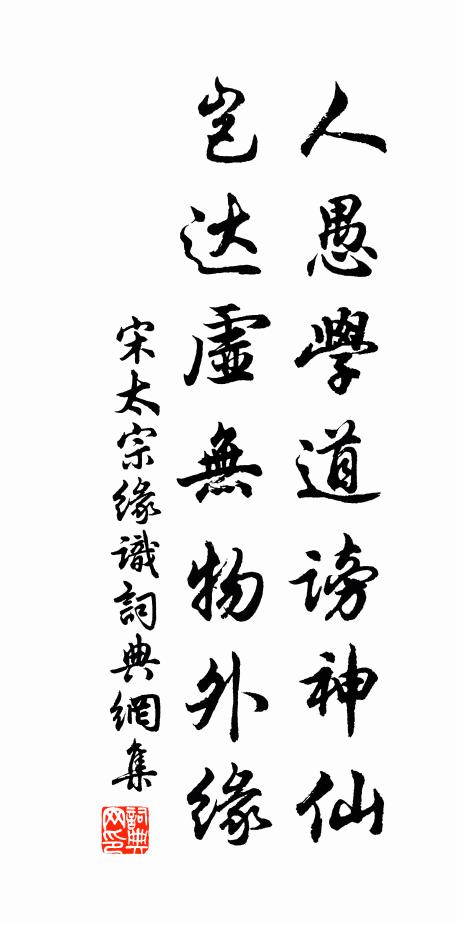 人愚學道謗神仙
岂达虛無物外緣
宋太宗緣識詞典網集
詞典
网印